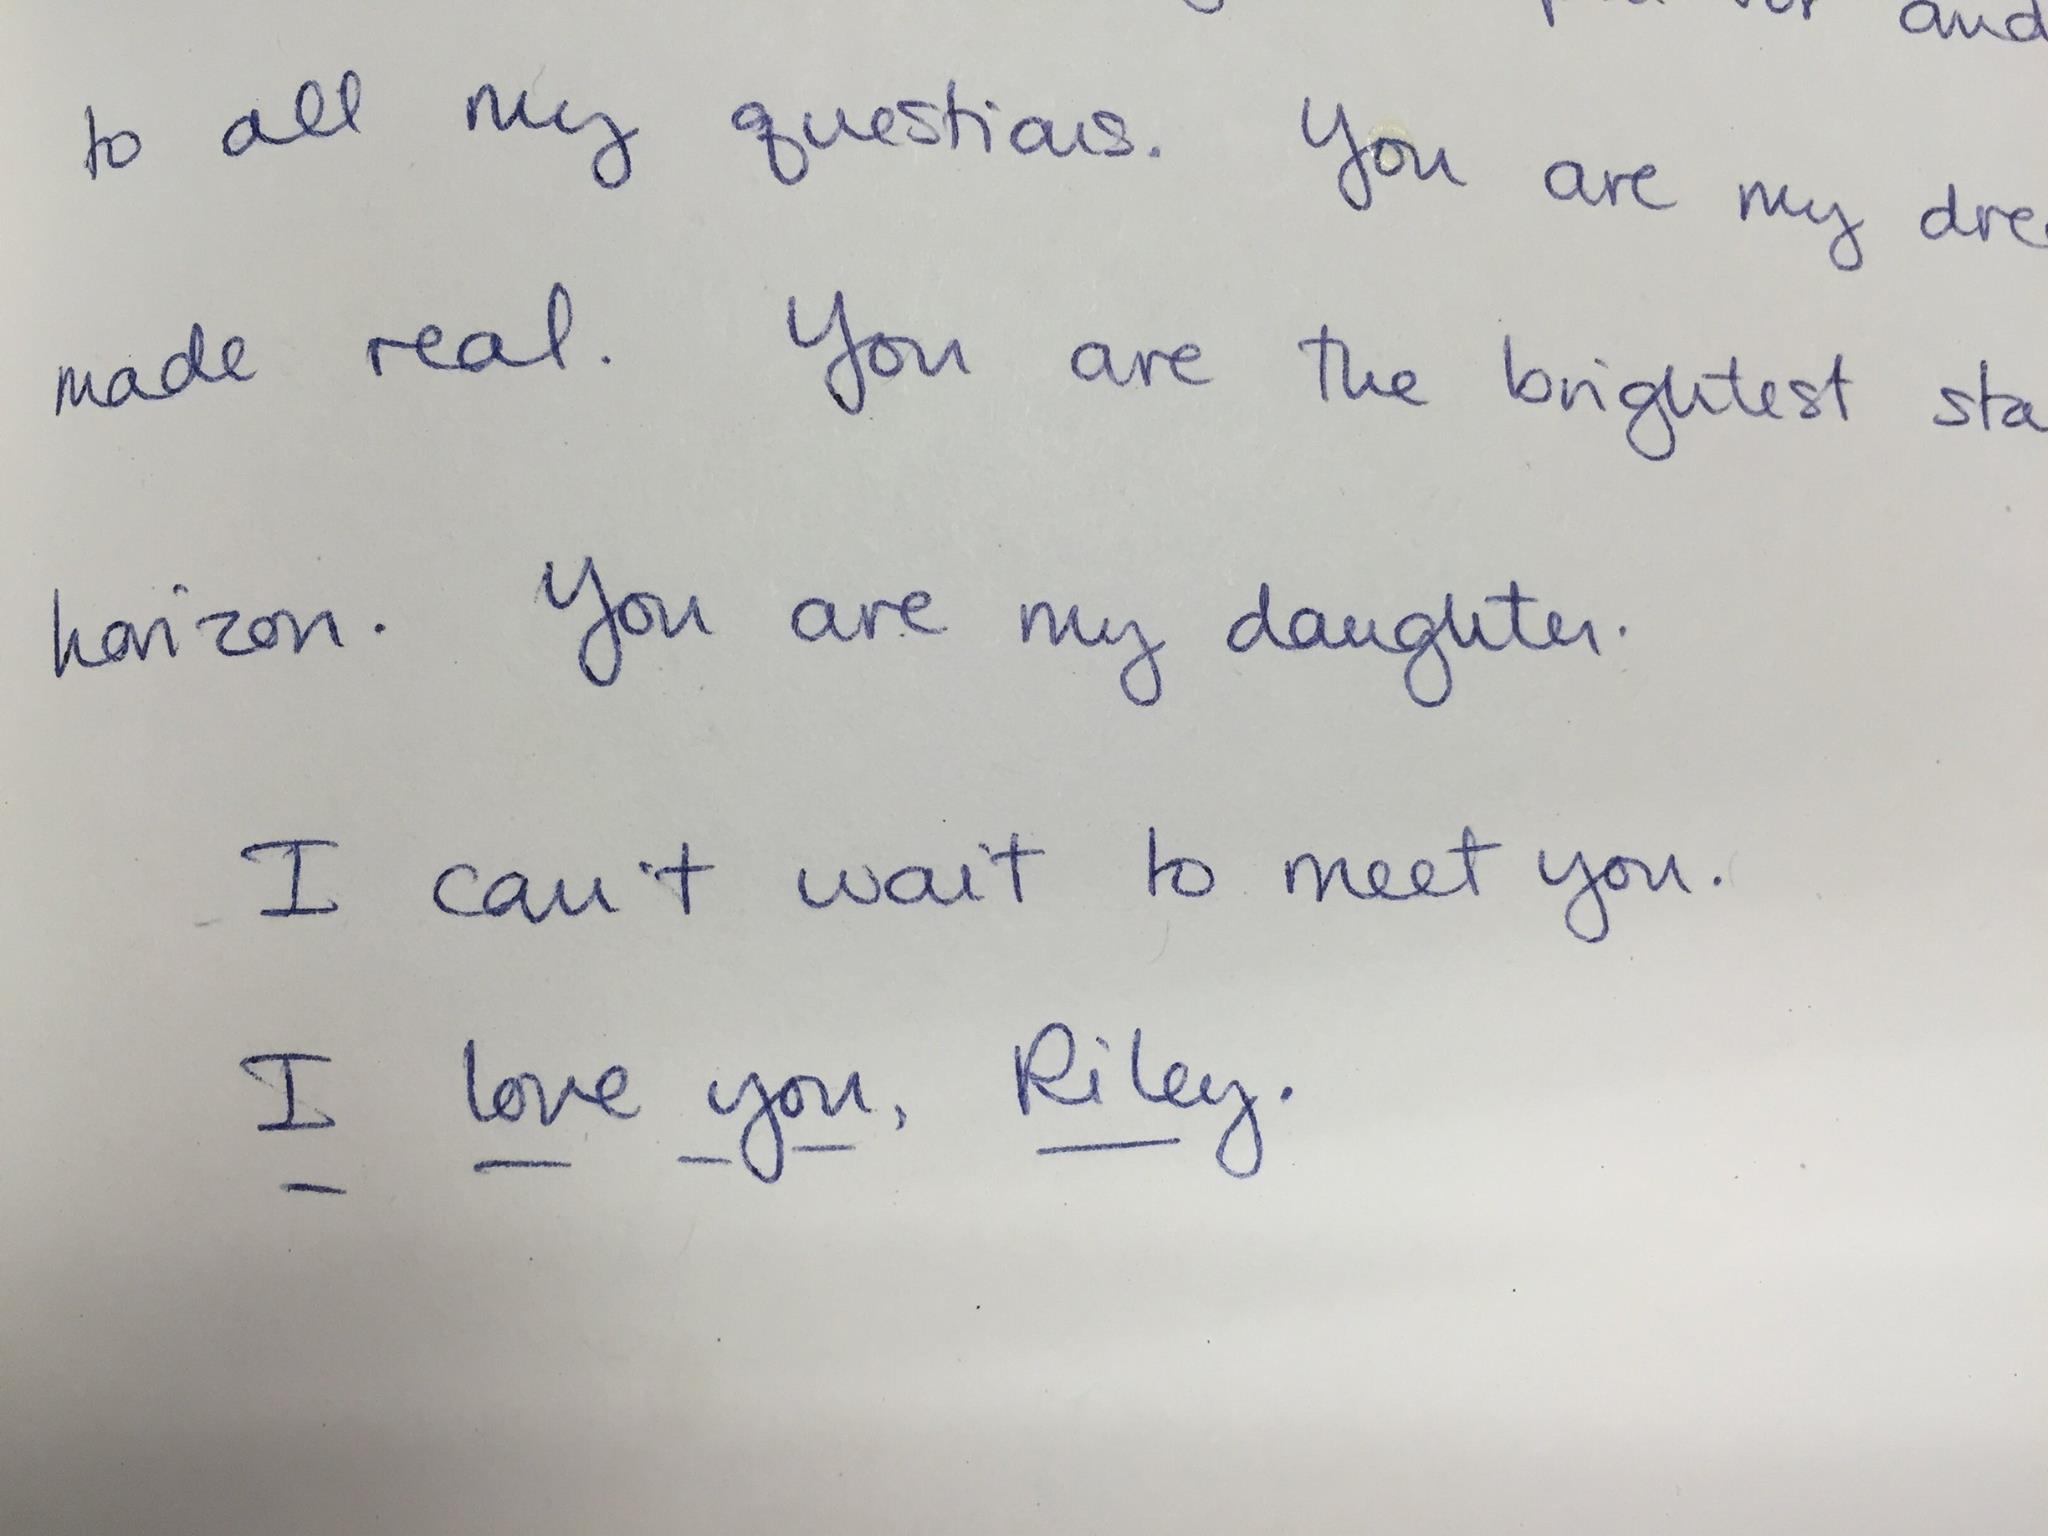 and
to all my questions. You are my
made real. You are the brightest
horizon. You are my daughter.
I can't wait to meet you.
I love you, Riley.